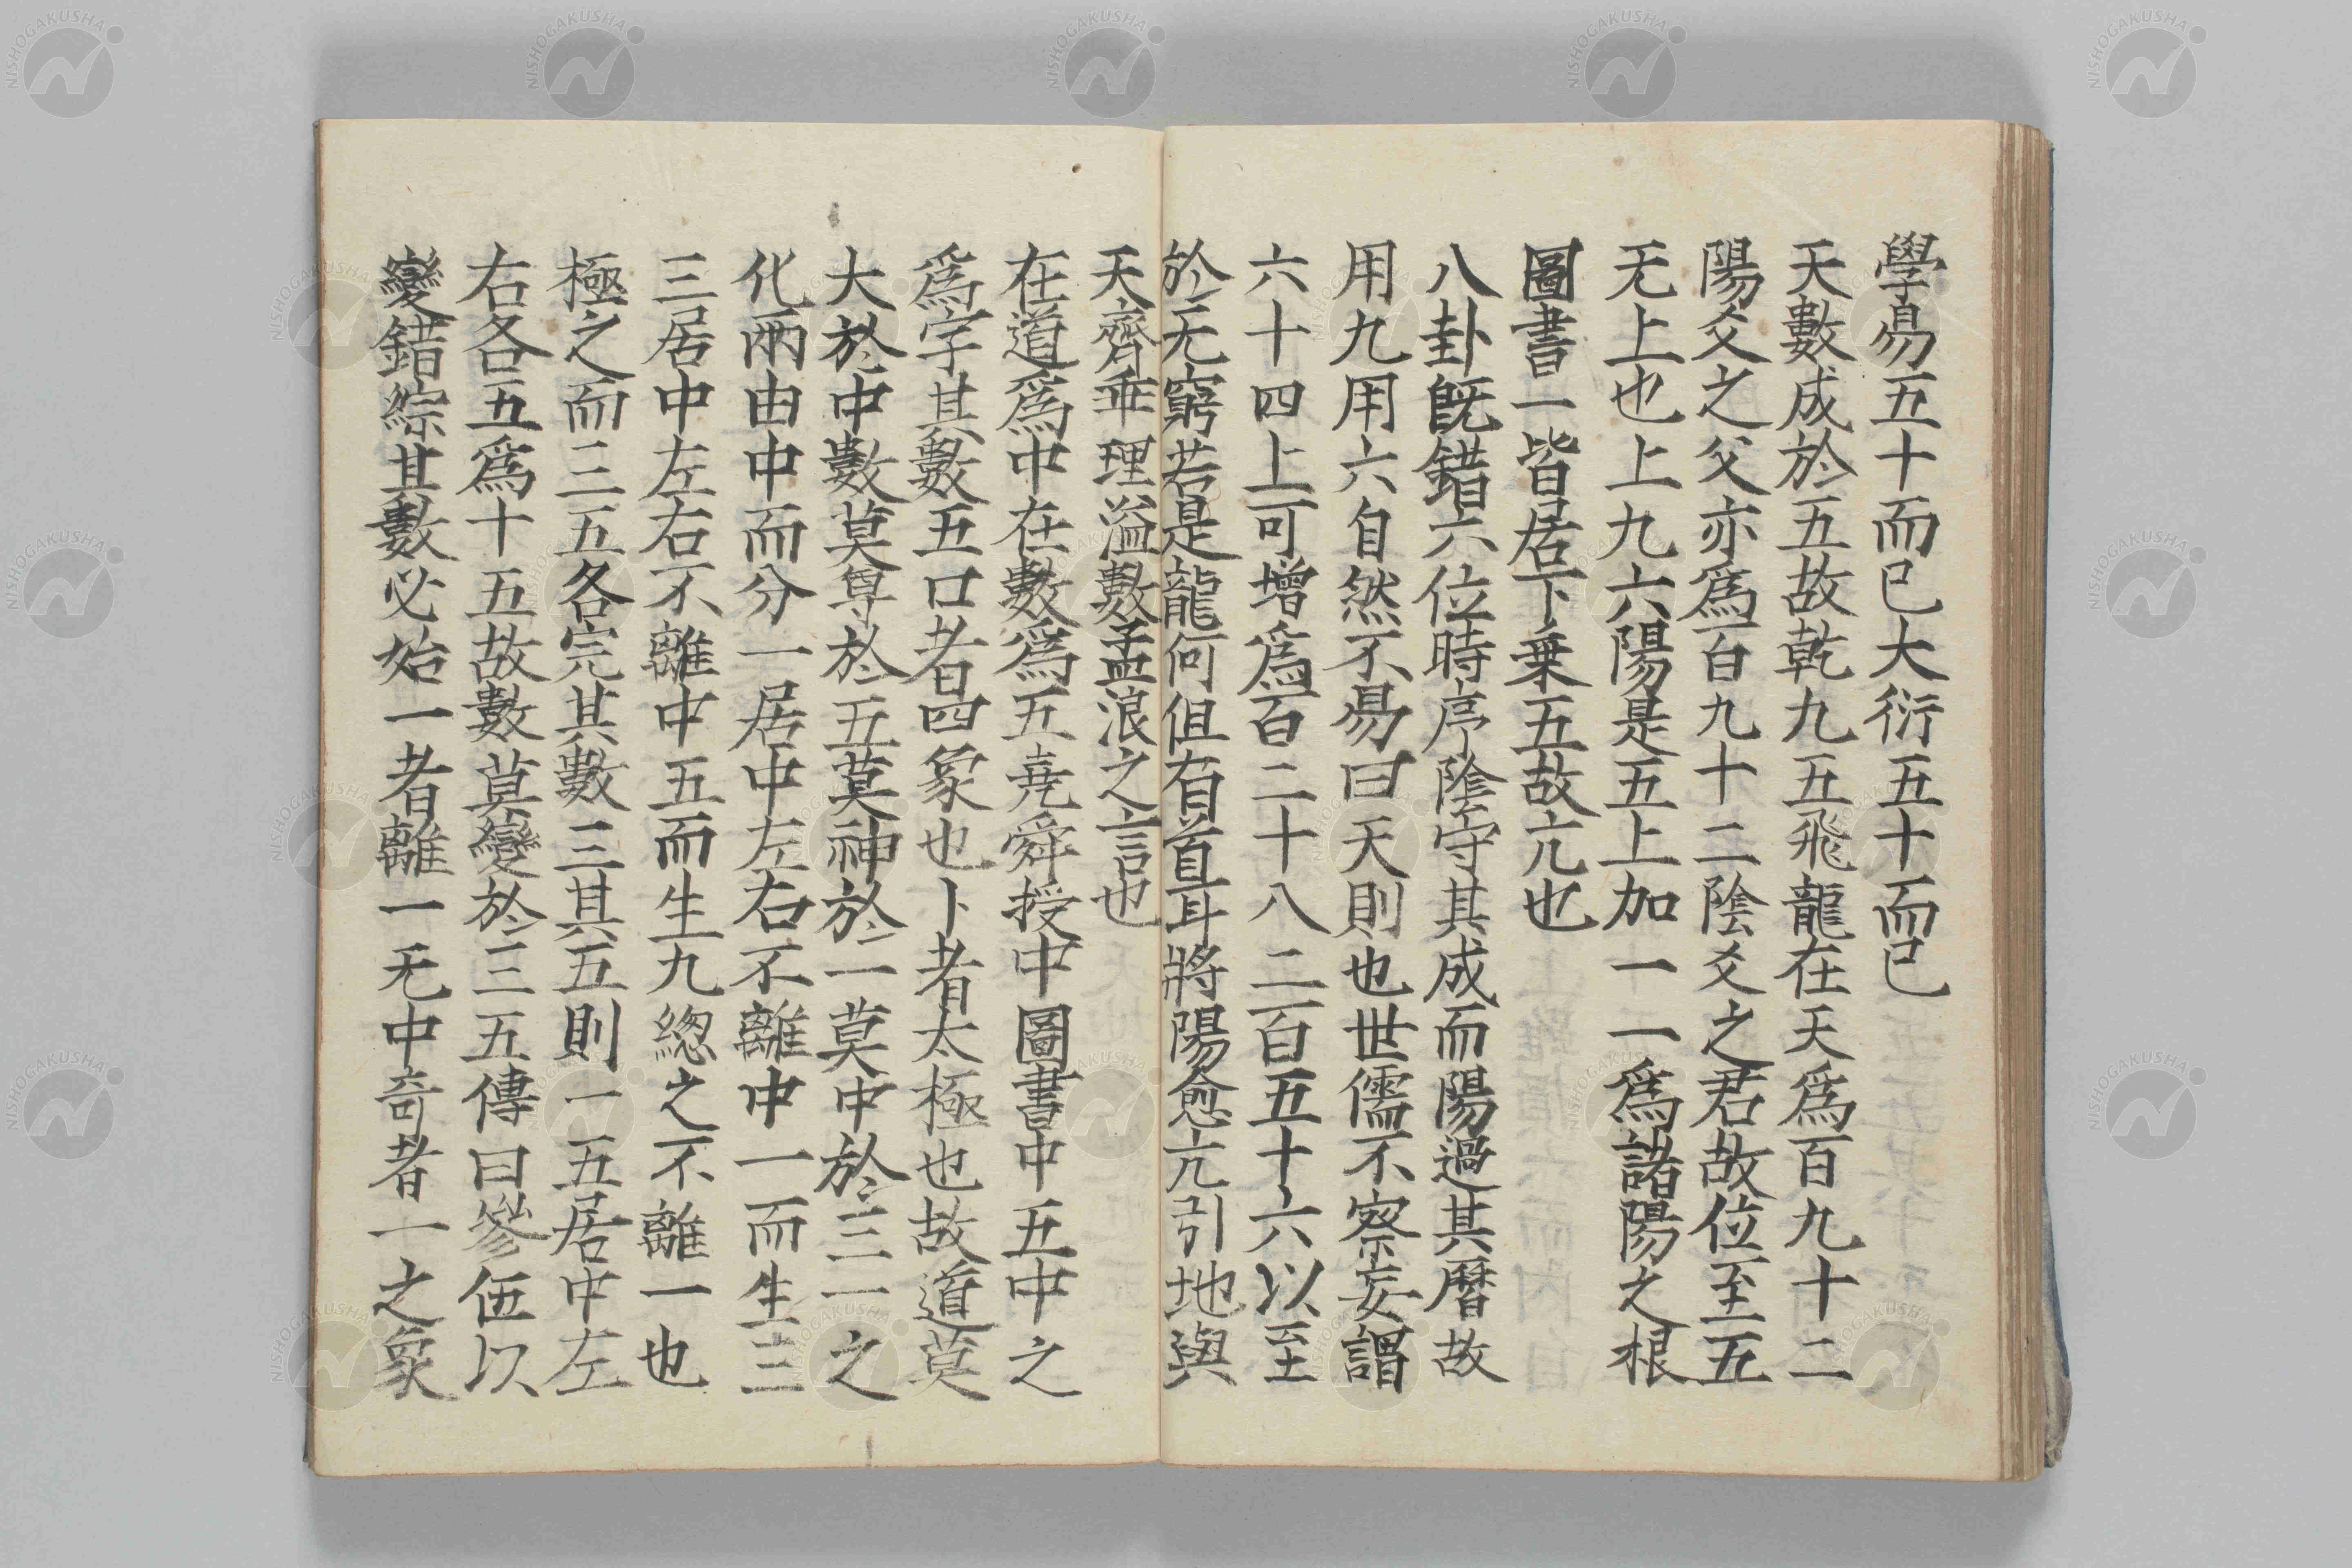 學易五十而已大衍五十而已
天數成於五故乾九五飛龍在天爲百九十二
陽爻之父亦爲百九十二陰爻之君故位至五
无上也上九六陽是五上加一一爲諸陽之根
圖書一皆居下乗五故亢也
八卦既錯六位時序陰守其成而陽過其曆故
用九用六自然不易曰天則也世儒不察妄謂
六十四上可增爲百二十八二百五十六以至
於无窮若是龍何但有首耳將陽愈亢引地與
天齊乖理溢數孟浪之言也
在道爲中在數爲五堯舜授中圖書中五中之
爲字其數五口者四象也卜者太極也故道莫
大於中數莫尊於五莫神於一莫中於三一之
化兩由中而分一居中左右不離中一而生三
三居中左右不離中五而生九緫之不離一也
極之而三五各完其數三其五則一五居中左
右各五爲十五故數莫變於三五傳曰參伍以
變錯綜其數必始一者離一无中竒者一之象
NISHOGAKUSHA